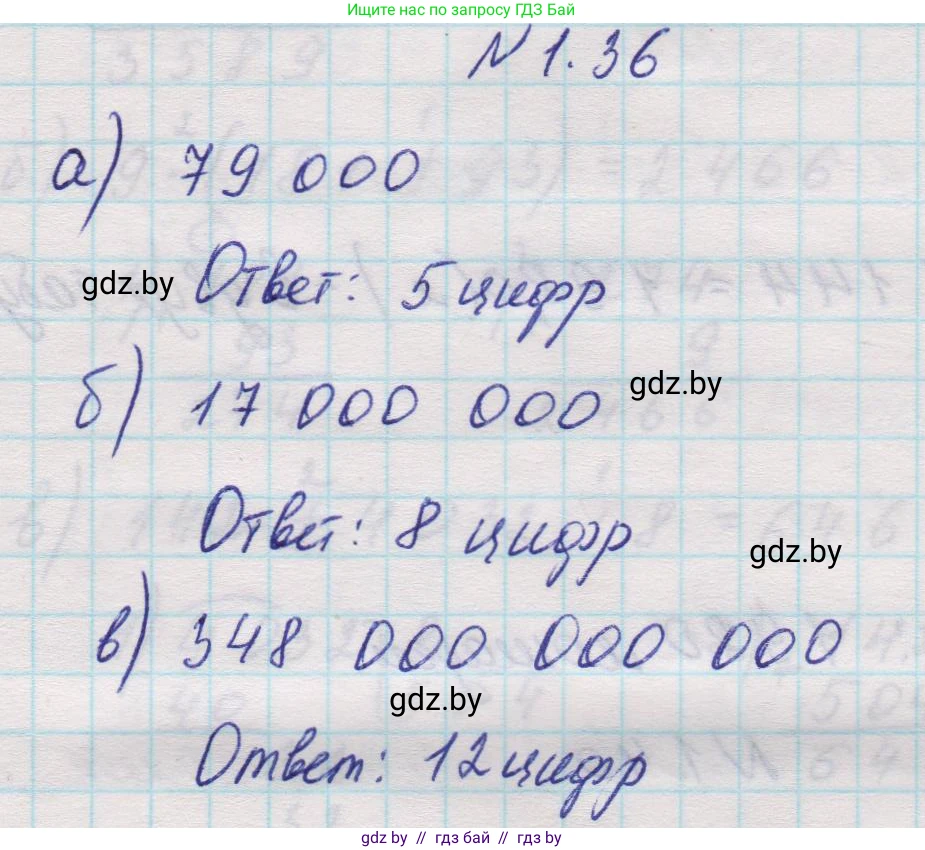 Ищите нас по запросу ГДЗ Бай
№ 1.36
а) 79 000
Ответ: 5 цифр
gdz.by
б) 17 000 000
gdz.by
Ответ: 8 цифр
gdz.by
в) 348 000 000 000
gdz.by
Ответ: 12 цифр
gdz.by // гдз бай // гдз by